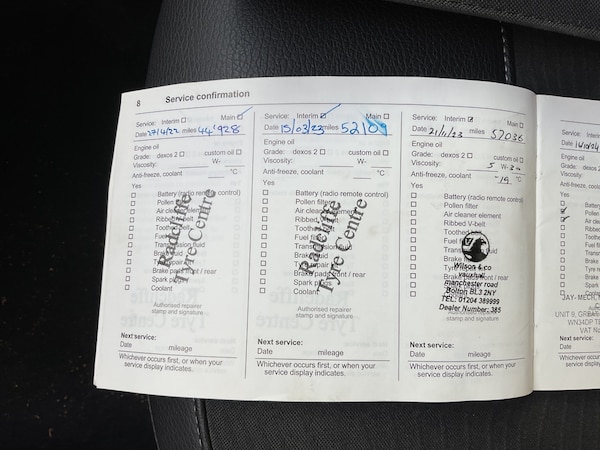 8 Service confirmation
Service: Interim Main
Date 27/4/22 miles 44'928
Engine oil
Grade: dexos 2 custom oil
Viscosity: W-
Anti-freeze, coolant °C
Yes
Battery (radio remote control)
Pollen
Air cleaner
Ribbed
Toothed
Fuel
Transmission fluid
Brake
Tyre
Brake pads front / rear
Spark
Coolant
Radcliffe
Tyre Centre
Authorised repairer
stamp and signature
Next service:
Date mileage
Whichever occurs first, or when your
service display indicates.
Service: Interim Main
Date 15/03/23 miles
Engine oil
Grade: dexos 2 custom oil
Viscosity: W-
Anti-freeze, coolant °C
Yes
Battery (radio remote control)
Pollen filter
Air cleaner element
Ribbed V-belt
Toothed
Fuel
fluid
Brake
Brake pads front / rear
Spark plugs
Coolant
Radcliffe
Tyre Centre
Authorised repairer
stamp and signature
Next service:
Date mileage
Whichever occurs first, or when your
service display indicates.
Service: Interim Main
Date 21/11/23 miles 57036
Engine oil
Grade: dexos 2 custom oil
Viscosity: 5 W-30
Anti-freeze, coolant -19 °C
Yes
Battery (radio remote control)
Pollen filter
Air cleaner element
Ribbed V-belt
Toothed
Fuel
fluid
Brake
Brake pads front / rear
Wilson & co
vauxhall
manchester road
Bolton BL3 2NY
TEL: 01204 389999
Dealer Number: 385
stamp and signature
Next service:
Date mileage
Whichever occurs first, or when your
service display indicates.
Service:
Date
Engine oil
Grade:
Viscosity:
Anti-freeze
Yes
JAY-MECH
WN34DP
VAT
Next service:
Date
Whichever
service